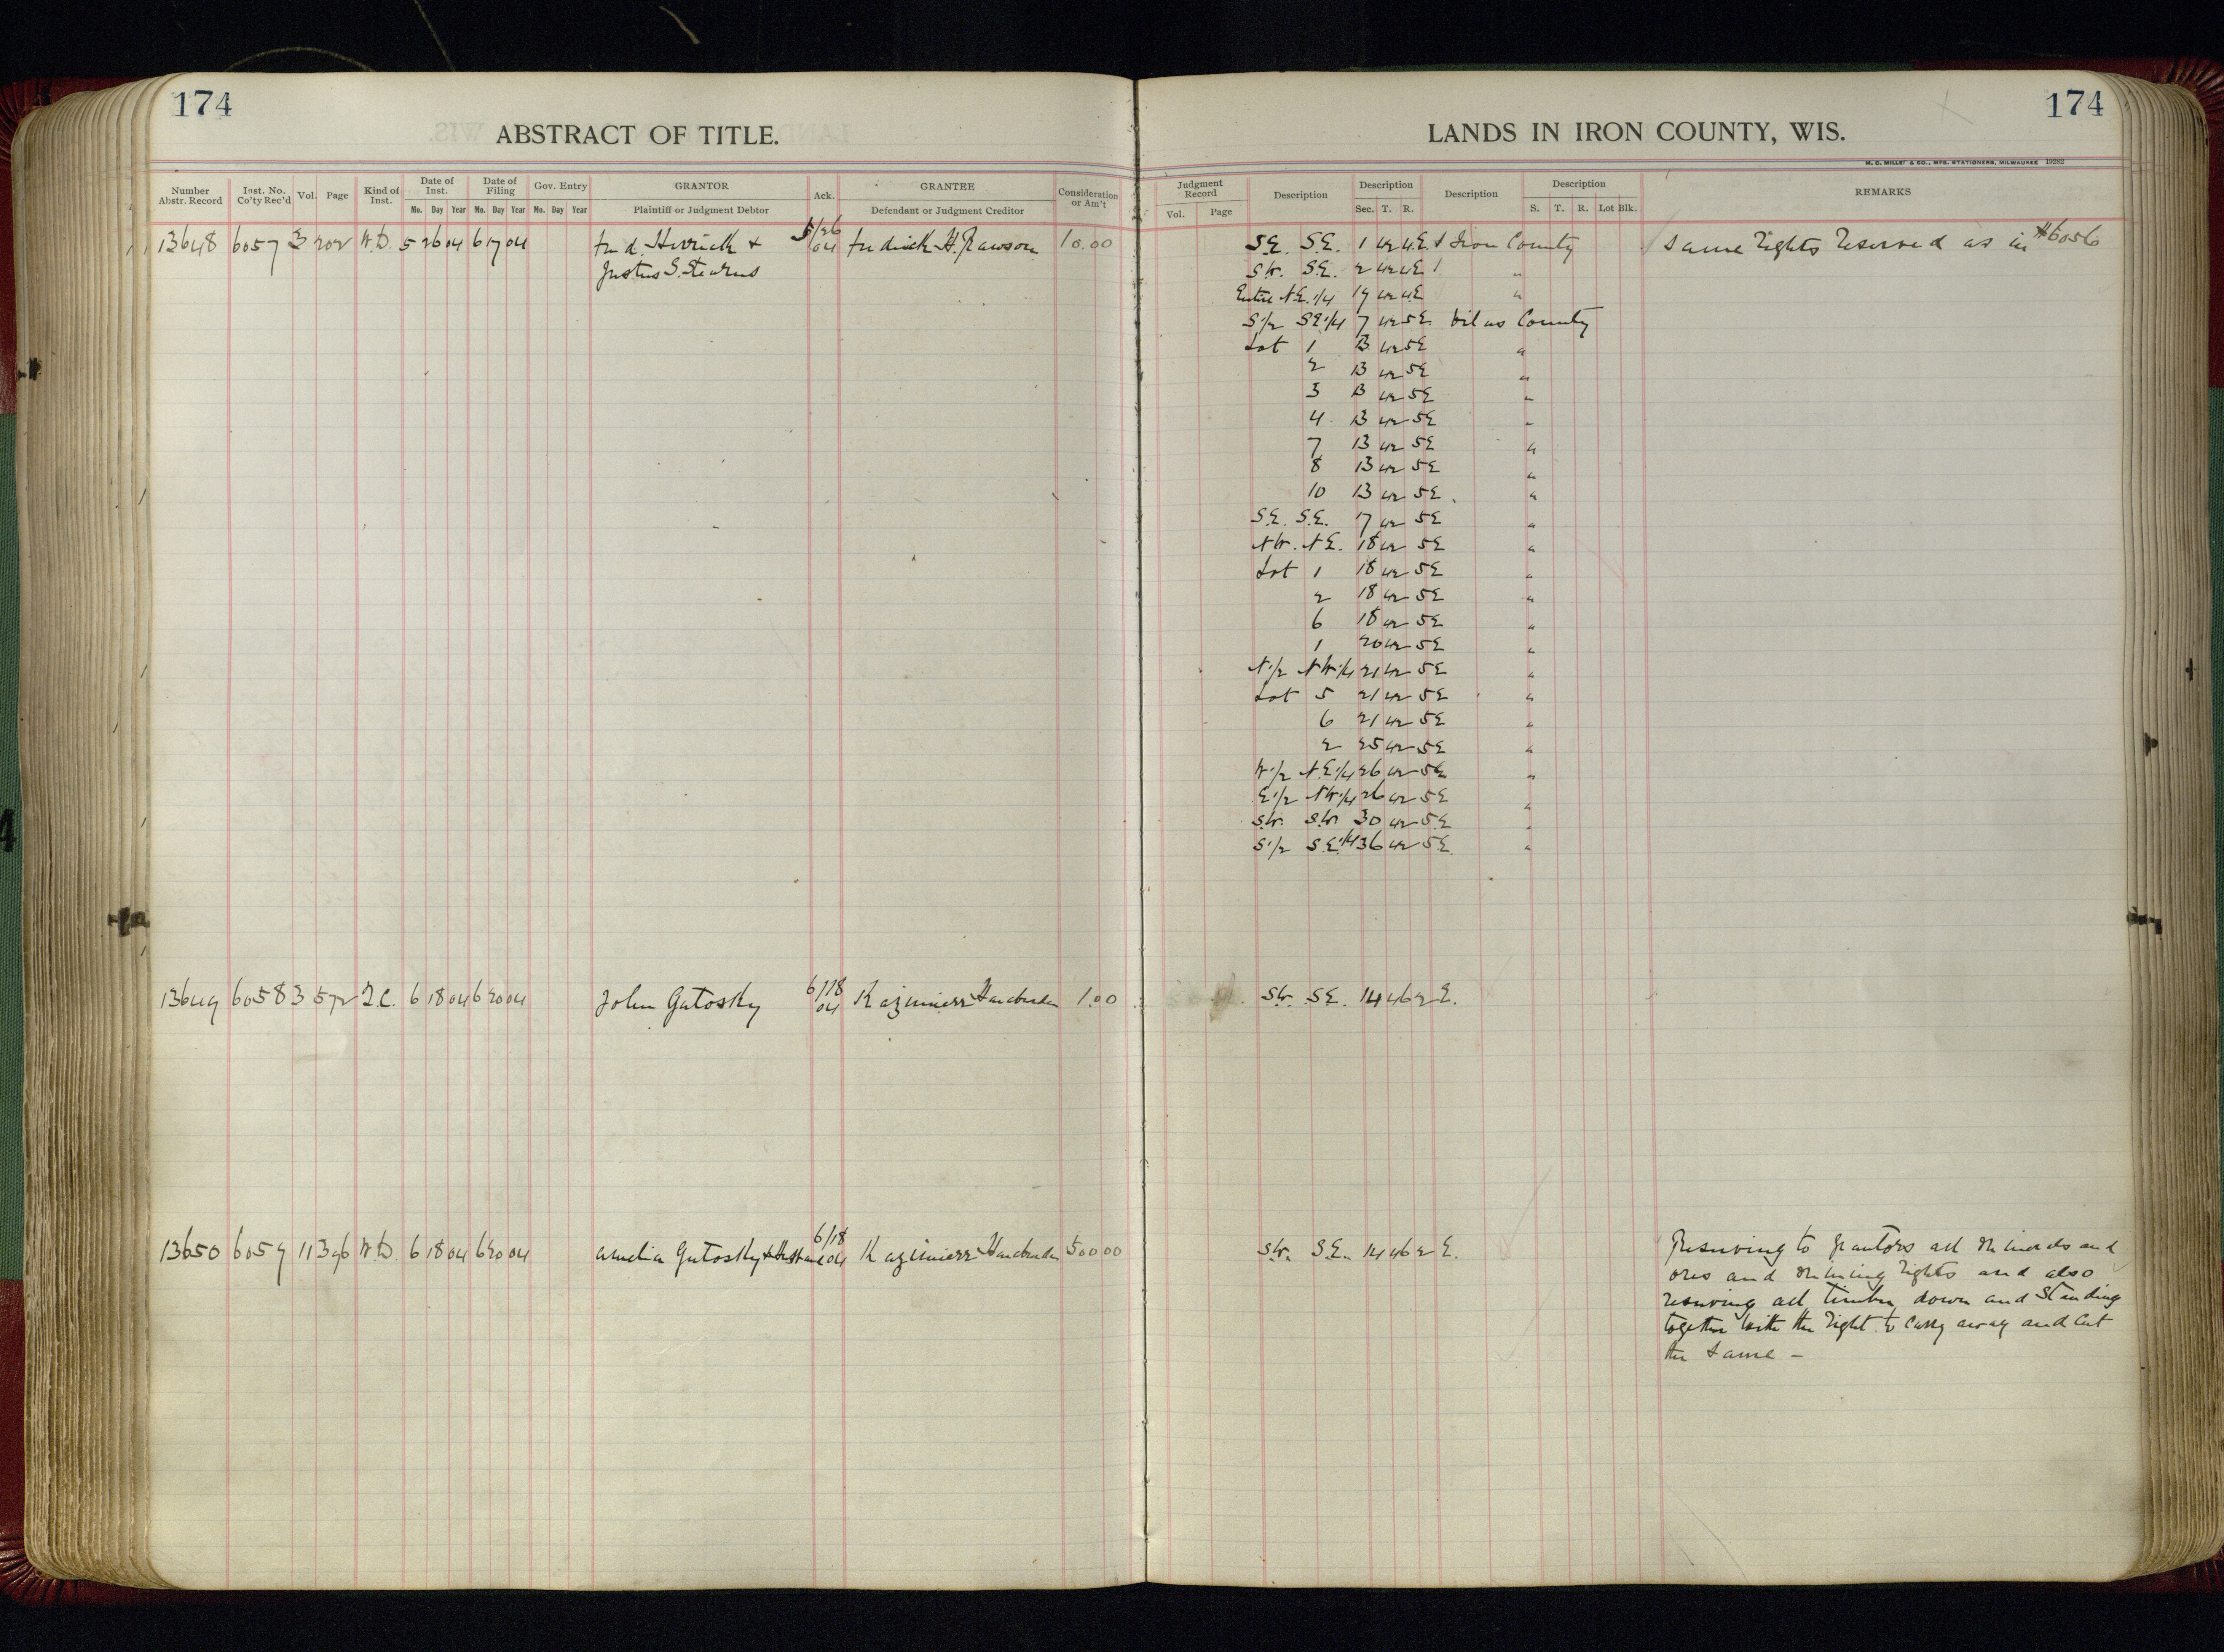 174
174
ABSTRACT OF TITLE.
LANDS IN IRON COUNTY, WIS.
M. C. MILLER & CO., MFG. STATIONERS, MILWAUKEE 19282
Number Abstr. Record | Inst. No. Co'ty Rec'd | Vol. | Page | Kind of Inst. | Date of Inst. Mo. Day Year | Date of Filing Mo. Day Year | Gov. Entry Mo. Day Year | GRANTOR Plaintiff or Judgment Debtor | Ack. | GRANTEE Defendant or Judgment Creditor | Consideration or Am't
Judgment Record Vol. Page | Description | Description Sec. T. R. | Description | Description S. T. R. Lot Blk. | REMARKS
13648 6057 3 202 W.D. 5 26 04 6 17 04 Fred Herrick & 5/26 04 Fredrick H. Rawson 10.00 S.E. S.E. 1 42 4E Iron County Same rights reserved as in #6056
Justus S. Stearns S.W. S.E. 2 42 4E "
Entire N.E. 1/4 19 42 4E "
S 1/2 SE 1/4 7 42 5E Vilas County
Lot 1 13 42 5E "
2 13 42 5E "
3 13 42 5E "
4 13 42 5E "
7 13 42 5E "
8 13 42 5E "
10 13 42 5E "
S.E. S.E. 17 42 5E "
N.W. N.E. 18 42 5E "
Lot 1 18 42 5E "
2 18 42 5E "
6 18 42 5E "
1 20 42 5E "
N 1/2 N.W. 1/4 21 42 5E "
Lot 5 21 42 5E "
6 21 42 5E "
2 25 42 5E "
W 1/2 N.E. 1/4 26 42 5E "
E 1/2 N.W. 1/4 26 42 5E "
S.W. S.W. 30 42 5E "
S 1/2 S.E. 1/4 36 42 5E "
13649 6058 3 572 Q.C. 6 18 04 6 20 04 John Gutosky 6/18 04 Kazimierz 1.00 S.W. S.E. 14 46 2 E.
13650 6059 11 396 W.D. 6 18 04 6 20 04 Amelia Gutosky & Husband 6/18 04 Kazimierz 500 00 S.W. S.E. 14 46 2 E. Reserving to grantors all minerals and
ores and mining rights and also
reserving all timber down and standing
together with the right to carry away and cut
the same –